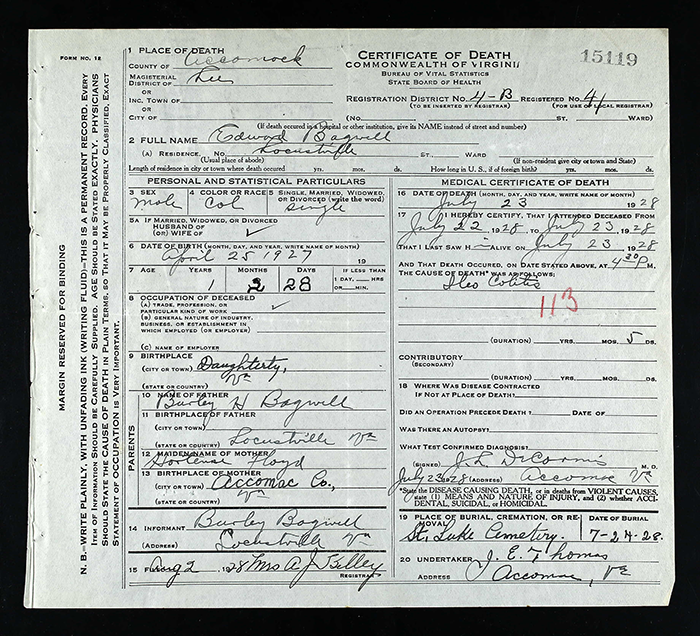 FORM NO. 12
MARGIN RESERVED FOR BINDING
N. B.—WRITE PLAINLY, WITH UNFADING INK (WRITING FLUID)—THIS IS A PERMANENT RECORD. EVERY
ITEM OF INFORMATION SHOULD BE CAREFULLY SUPPLIED. AGE SHOULD BE STATED EXACTLY. PHYSICIANS
SHOULD STATE THE CAUSE OF DEATH IN PLAIN TERMS, SO THAT IT MAY BE PROPERLY CLASSIFIED. EXACT
STATEMENT OF OCCUPATION IS VERY IMPORTANT.
1 PLACE OF DEATH
COUNTY OF Accomack
MAGISTERIAL DISTRICT OF Lee
OR
INC. TOWN OF
OR
CITY OF
CERTIFICATE OF DEATH
COMMONWEALTH OF VIRGINIA
BUREAU OF VITAL STATISTICS
STATE BOARD OF HEALTH
15119
REGISTRATION DISTRICT NO. 4-B REGISTERED NO. 41
(TO BE INSERTED BY REGISTRAR) (FOR USE OF LOCAL REGISTRAR)
(No. ST. WARD)
(If death occured in a hospital or other institution, give its NAME instead of street and number)
2 FULL NAME Edward Bagwell
(A) RESIDENCE. No. Locustville ST. WARD
(Usual place of abode) (If non-resident give city or town and State)
Length of residence in city or town where death occured yrs. mos. ds. How long in U. S., if of foreign birth? yrs. mos. ds.
PERSONAL AND STATISTICAL PARTICULARS
3 SEX male
4 COLOR OR RACE Col
5 SINGLE, MARRIED, WIDOWED, OR DIVORCED (write the word) Single
5A IF MARRIED, WIDOWED, OR DIVORCED
HUSBAND OF
(OR) WIFE OF ✓
6 DATE OF BIRTH (MONTH, DAY, AND YEAR, WRITE NAME OF MONTH)
April 25 1927 19
7 AGE YEARS MONTHS DAYS IF LESS THAN 1 DAY, HRS. OR MIN.
1 2 28
8 OCCUPATION OF DECEASED
(A) TRADE, PROFESSION, OR PARTICULAR KIND OF WORK ✓
(B) GENERAL NATURE OF INDUSTRY, BUSINESS, OR ESTABLISHMENT IN WHICH EMPLOYED (OR EMPLOYER)
(C) NAME OF EMPLOYER
9 BIRTHPLACE
(CITY OR TOWN) Daughterty,
(STATE OR COUNTRY) Va
PARENTS
10 NAME OF FATHER
Burley H Bagwell
11 BIRTHPLACE OF FATHER
(CITY OR TOWN)
(STATE OR COUNTRY) Locustville Va
12 MAIDEN NAME OF MOTHER
Hortense Floyd
13 BIRTHPLACE OF MOTHER
(CITY OR TOWN) Accomac Co.,
(STATE OR COUNTRY) Va
14 INFORMANT Burley Bagwell
(ADDRESS) Locustville Va
15 FILED Aug 2 1928 Mrs A. J. Kelley
REGISTRAR
MEDICAL CERTIFICATE OF DEATH
16 DATE OF DEATH (MONTH, DAY, AND YEAR, WRITE NAME OF MONTH)
July 23 1928
17 I HEREBY CERTIFY, THAT I ATTENDED DECEASED FROM
July 22 1928 TO July 23 1928
THAT I LAST SAW H im ALIVE ON July 23 1928
AND THAT DEATH OCCURED, ON DATE STATED ABOVE, AT 4 30 P M.
THE CAUSE OF DEATH* WAS AS FOLLOWS:
Ileo Colitis
113
(DURATION) YRS. MOS. 5 DS.
CONTRIBUTORY
(SECONDARY)
(DURATION) YRS. MOS. DS.
18 WHERE WAS DISEASE CONTRACTED
IF NOT AT PLACE OF DEATH?
DID AN OPERATION PRECEDE DEATH? DATE OF
WAS THERE AN AUTOPSY?
WHAT TEST CONFIRMED DIAGNOSIS?
(SIGNED) J. L. DeCormis M. D.
July 23 1928 (ADDRESS) Accomac Va
*State the DISEASE CAUSING DEATH, or in deaths from VIOLENT CAUSES, state (1) MEANS AND NATURE OF INJURY, and (2) whether ACCIDENTAL, SUICIDAL, or HOMICIDAL.
19 PLACE OF BURIAL, CREMATION, OR REMOVAL DATE OF BURIAL
St. Luke Cemetery. 7-24-28.
20 UNDERTAKER J. E. Thomas
ADDRESS Accomac, Va